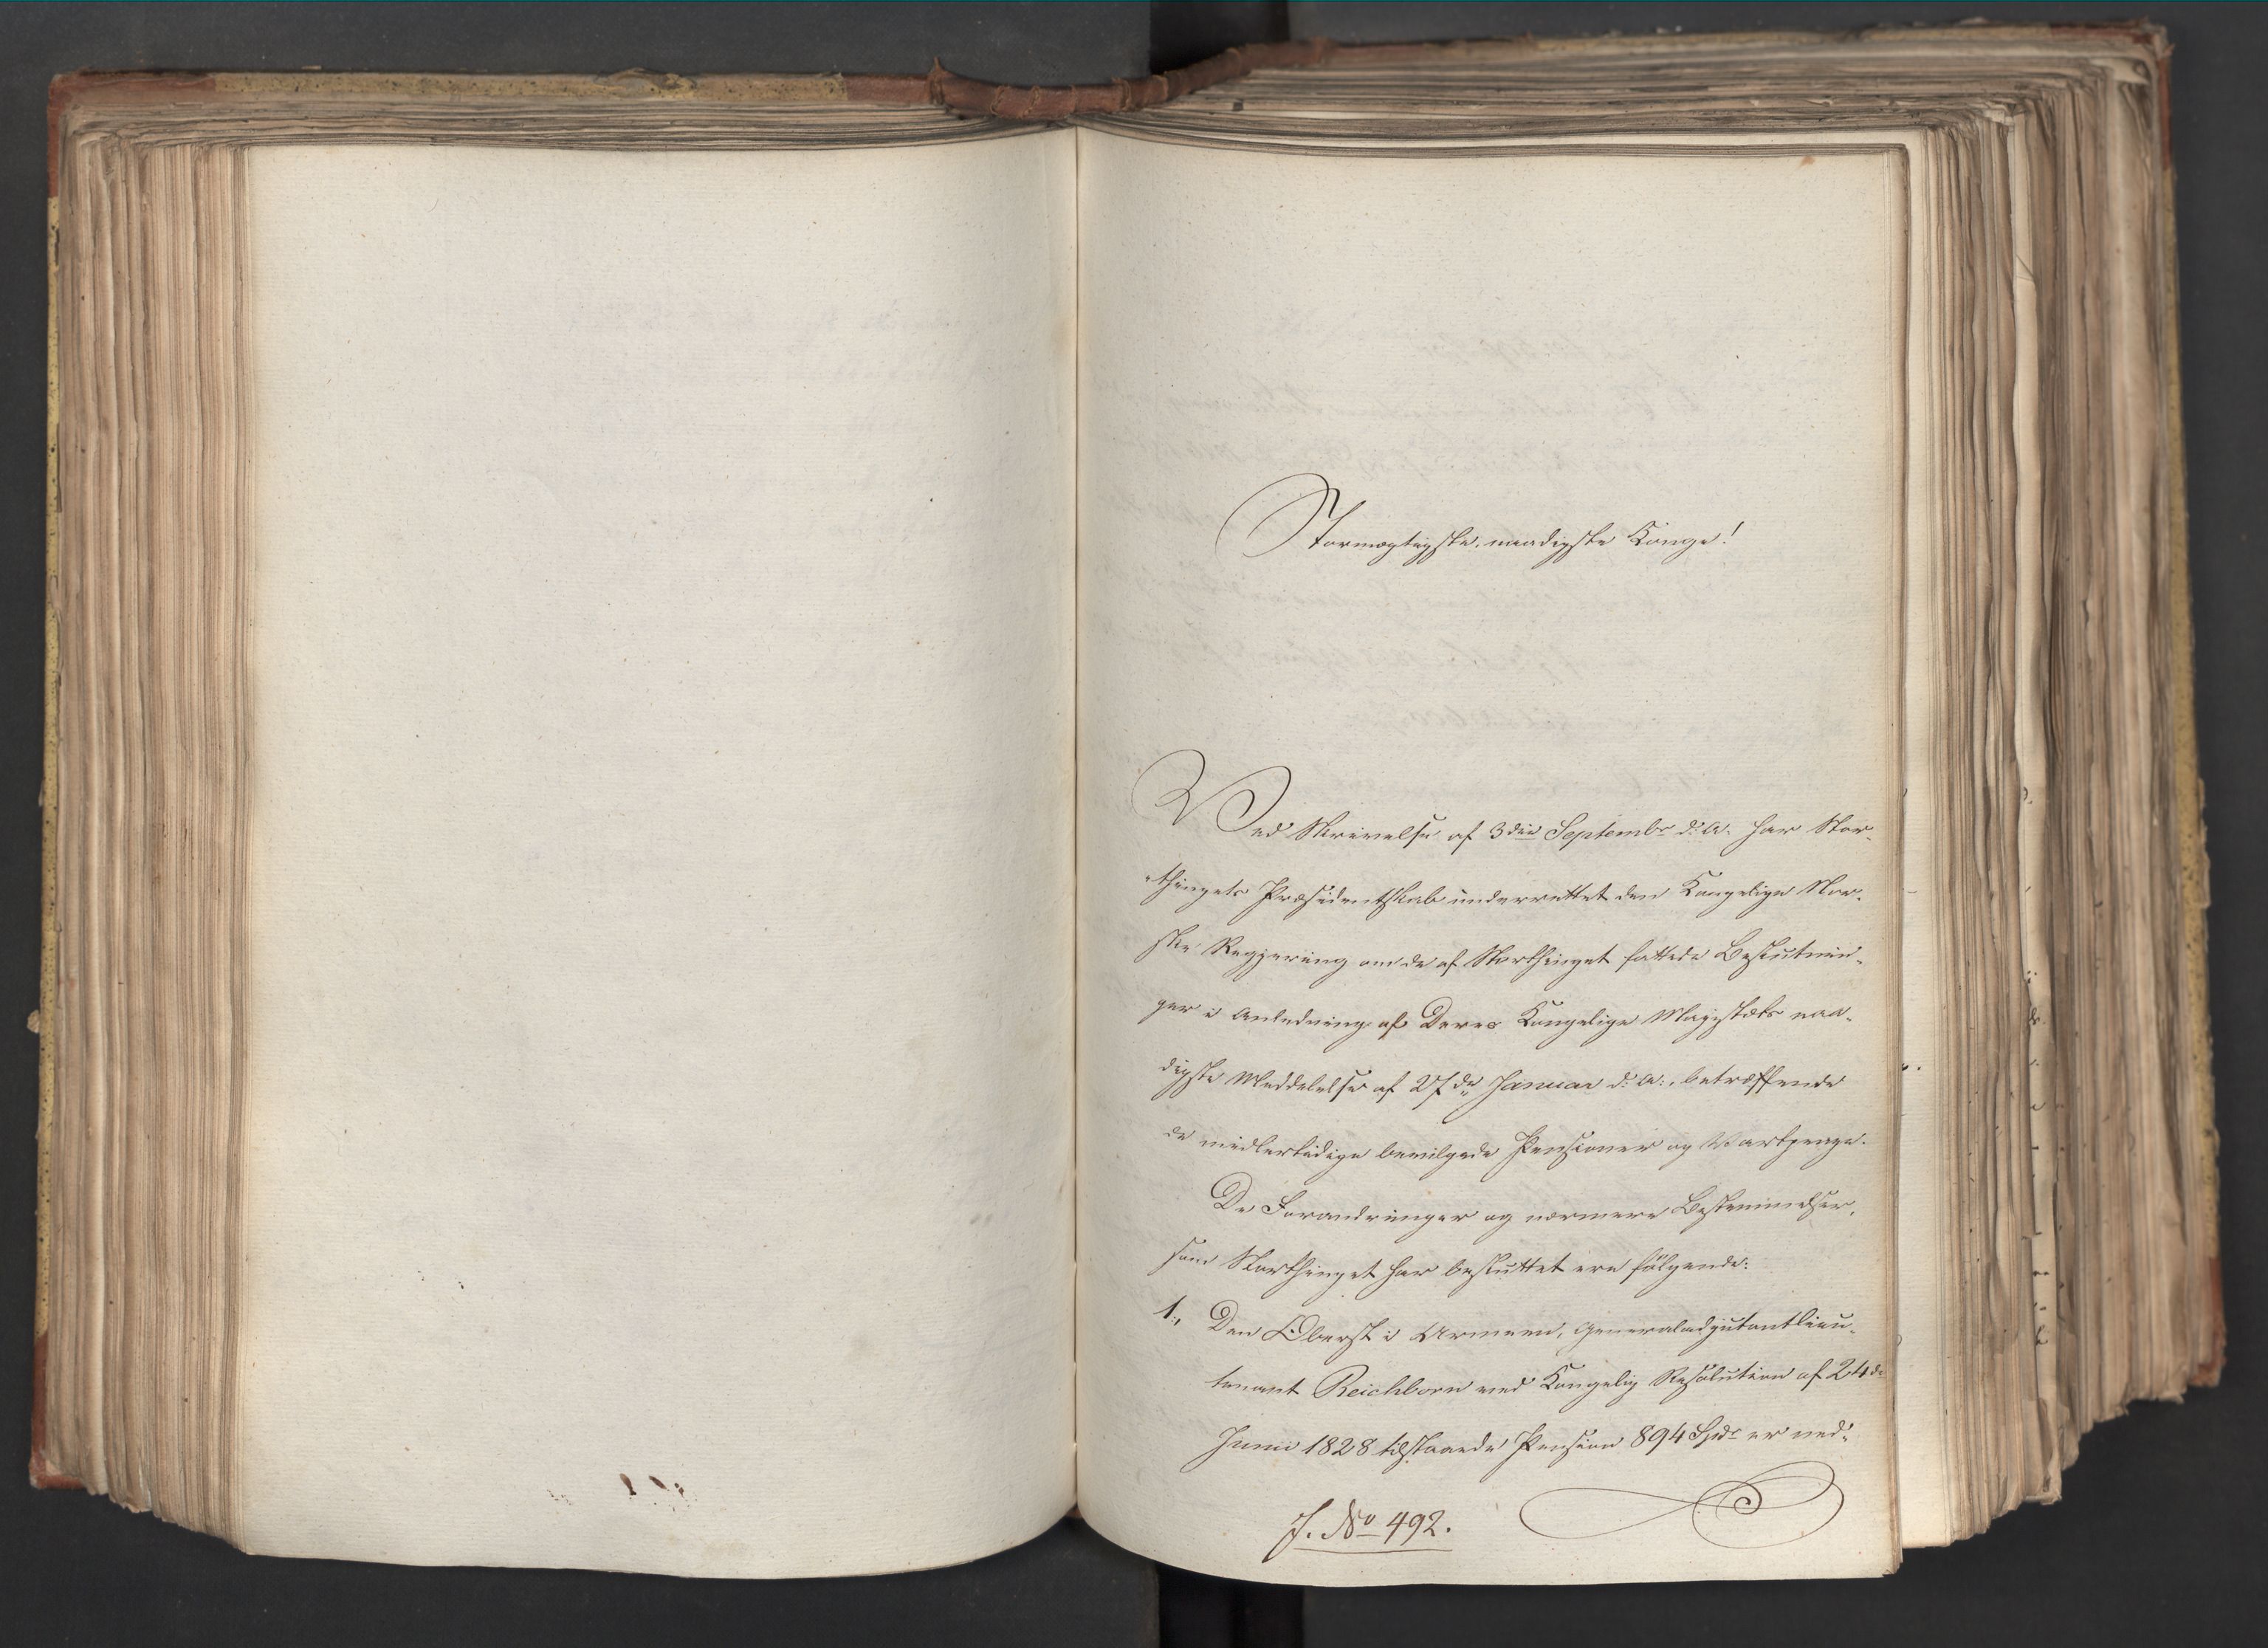 Stormægtigste, naadigste Konge!
Ved Skrivelse af 3die Septembr d: A: har Stor-
thingets Præsidentskab underrettet den Kongelige Nor-
ske Regjering om de af Storthinget fattede Beslutnin-
ger i Anledning af Deres Kongelige Majestæts naa-
digste Meddelelse af 27de Januar d: A:, betræffende
de midlertidige bevilgede Pensioner og Vartpenge.
De Forandringer og nærmere Bestemmelser,
som Storthinget har besluttet ere følgende:
1., Den Oberst i Armeen, Generaladjutantlieu-
tenant Reichborn ved Kongelig Resolution af 24de
Junii 1828 tilstaaede Pension 894 Spdr er ned-
J. No 492.